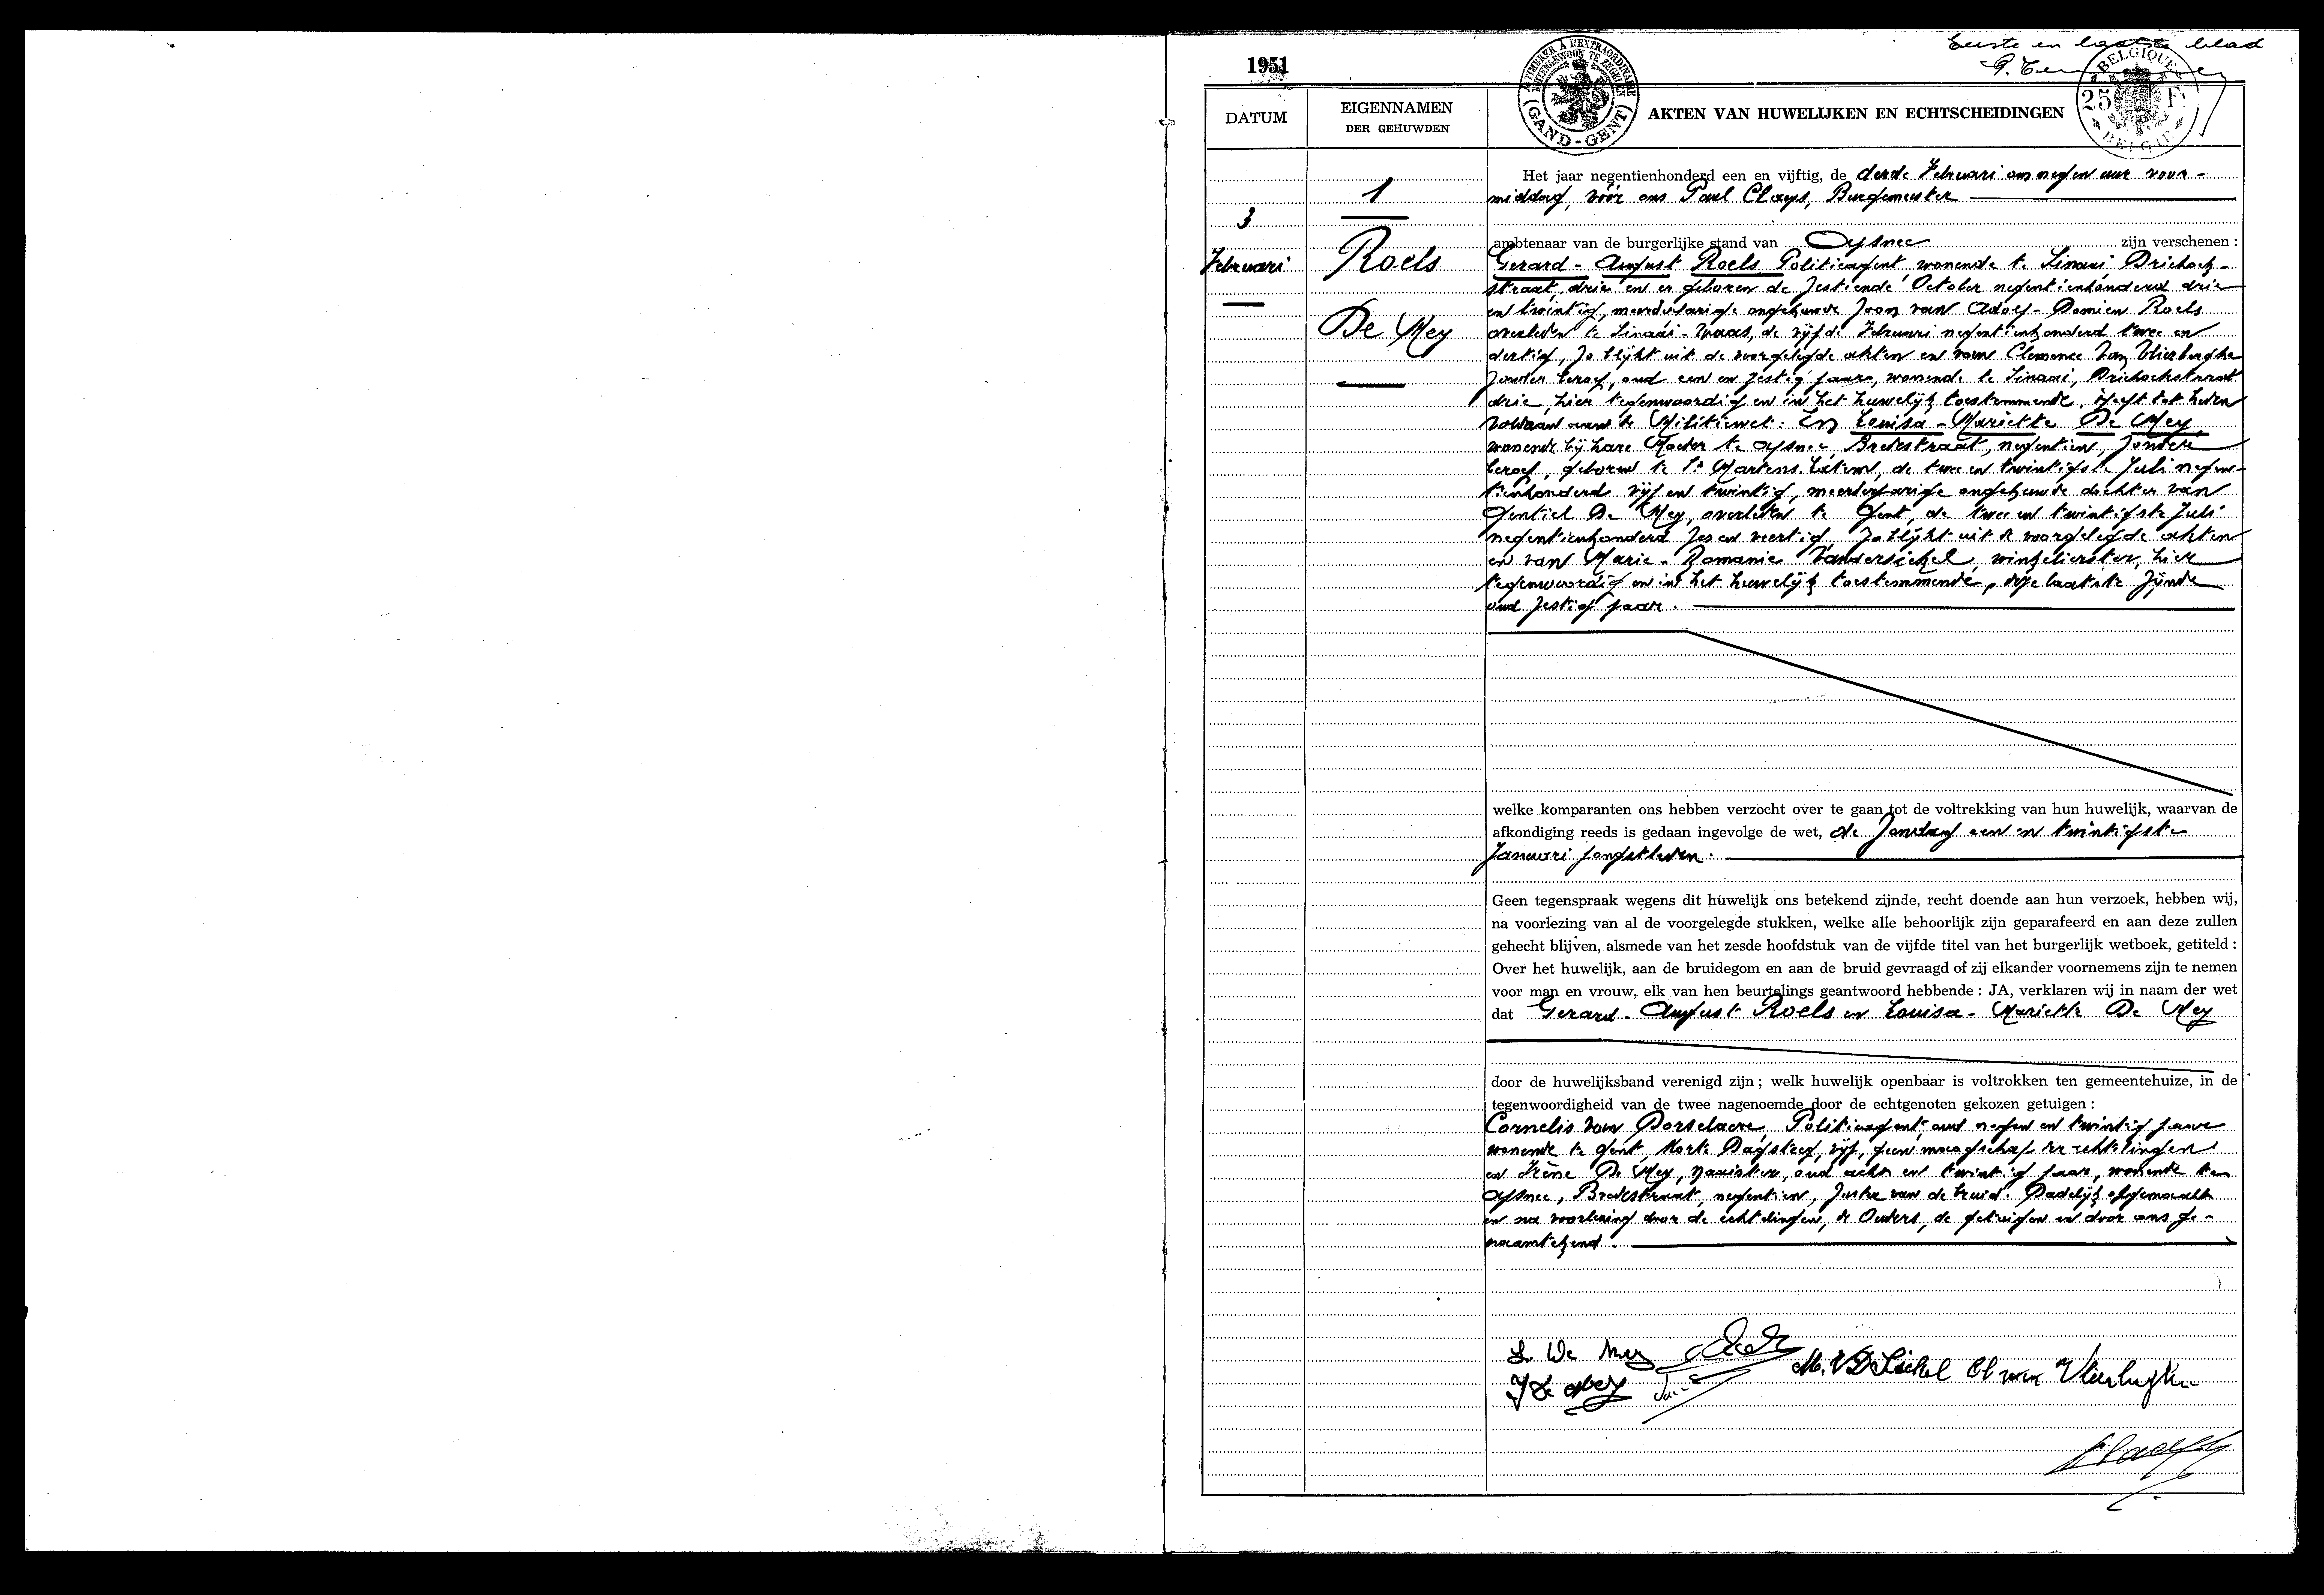 Eerste en laatste blad
1951
TIMBRER À L'EXTRAORDINAIRE
BUITENGEWOON TE ZEGELEN
(GAND-GENT)
BELGIQUE
25 F.
BELGIE
DATUM
EIGENNAMEN
DER GEHUWDEN
AKTEN VAN HUWELIJKEN EN ECHTSCHEIDINGEN
3
Februari
1
Roels
De Mey
Het jaar negentienhonderd een en vijftig, de derde Februari om negen uur voor-
middag, vóór ons Paul Claeys, Burgemeester
ambtenaar van de burgerlijke stand van Afsnee zijn verschenen :
Gerard - August Roels Politieagent, wonende te Sinaai, Driehoek-
straat, drie en er geboren de zestiende October negentienhonderd drie
en twintig, meerderjarige ongehuwde zoon van Adolf - Damien Roels
overleden te Sinaai-Waas, de vijfde Februari negentienhonderd twee en
dertig, zo blijkt uit de voorgelegde akten en van Clemence Van Vlierberghe
zonder beroep, oud een en zestig jaar, wonende te Sinaai, Driehoekstraat
drie, hier tegenwoordig en in het huwelijk toestemmende. Heeft tot heden
voldaan aan de Militiewet. En Louisa - Mariette De Mey
wonende bij hare Moeder te Afsnee, Bredestraat, negentien, zonder
beroep, geboren te St Martens-Latem, de twee en twintigste Juli negen-
tienhonderd vijf en twintig, meerderjarige ongehuwde dochter van
Gentiel De Mey, overleden te Gent, de twee en twintigste Juli
negentienhonderd zes en veertig, zo blijkt uit de voorgelegde akten
en van Marie - Romanie Vandersickel, winkelierster, hier
tegenwoordig en in het huwelijk toestemmende, deze laatste zijnde
oud zestig jaar.
welke komparanten ons hebben verzocht over te gaan tot de voltrekking van hun huwelijk, waarvan de
afkondiging reeds is gedaan ingevolge de wet, de Zondag een en twintigste
Januari jongstleden.
Geen tegenspraak wegens dit huwelijk ons betekend zijnde, recht doende aan hun verzoek, hebben wij,
na voorlezing van al de voorgelegde stukken, welke alle behoorlijk zijn geparafeerd en aan deze zullen
gehecht blijven, alsmede van het zesde hoofdstuk van de vijfde titel van het burgerlijk wetboek, getiteld :
Over het huwelijk, aan de bruidegom en aan de bruid gevraagd of zij elkander voornemens zijn te nemen
voor man en vrouw, elk van hen beurtelings geantwoord hebbende : JA, verklaren wij in naam der wet
dat Gerard - August Roels en Louisa - Mariette De Mey
door de huwelijksband verenigd zijn ; welk huwelijk openbaar is voltrokken ten gemeentehuize, in de
tegenwoordigheid van de twee nagenoemde door de echtgenoten gekozen getuigen :
Cornelis Van Dorselaere, Politieagent, oud negen en twintig jaar
wonende te Gent, Korte Dagsteeg, vijf, geen maagschap der echtelingen
en Irène De Mey, naaister, oud acht en twintig jaar, wonende te
Afsnee, Bredestraat, negentien, zuster van de bruid. Dadelijk opgemaakt
en na voorlezing door de echtelingen, de Ouders, de getuigen en door ons ge-
naamtekend.
L De Mey
M. VD Sickel Cl van Vlierberghe
I De Mey